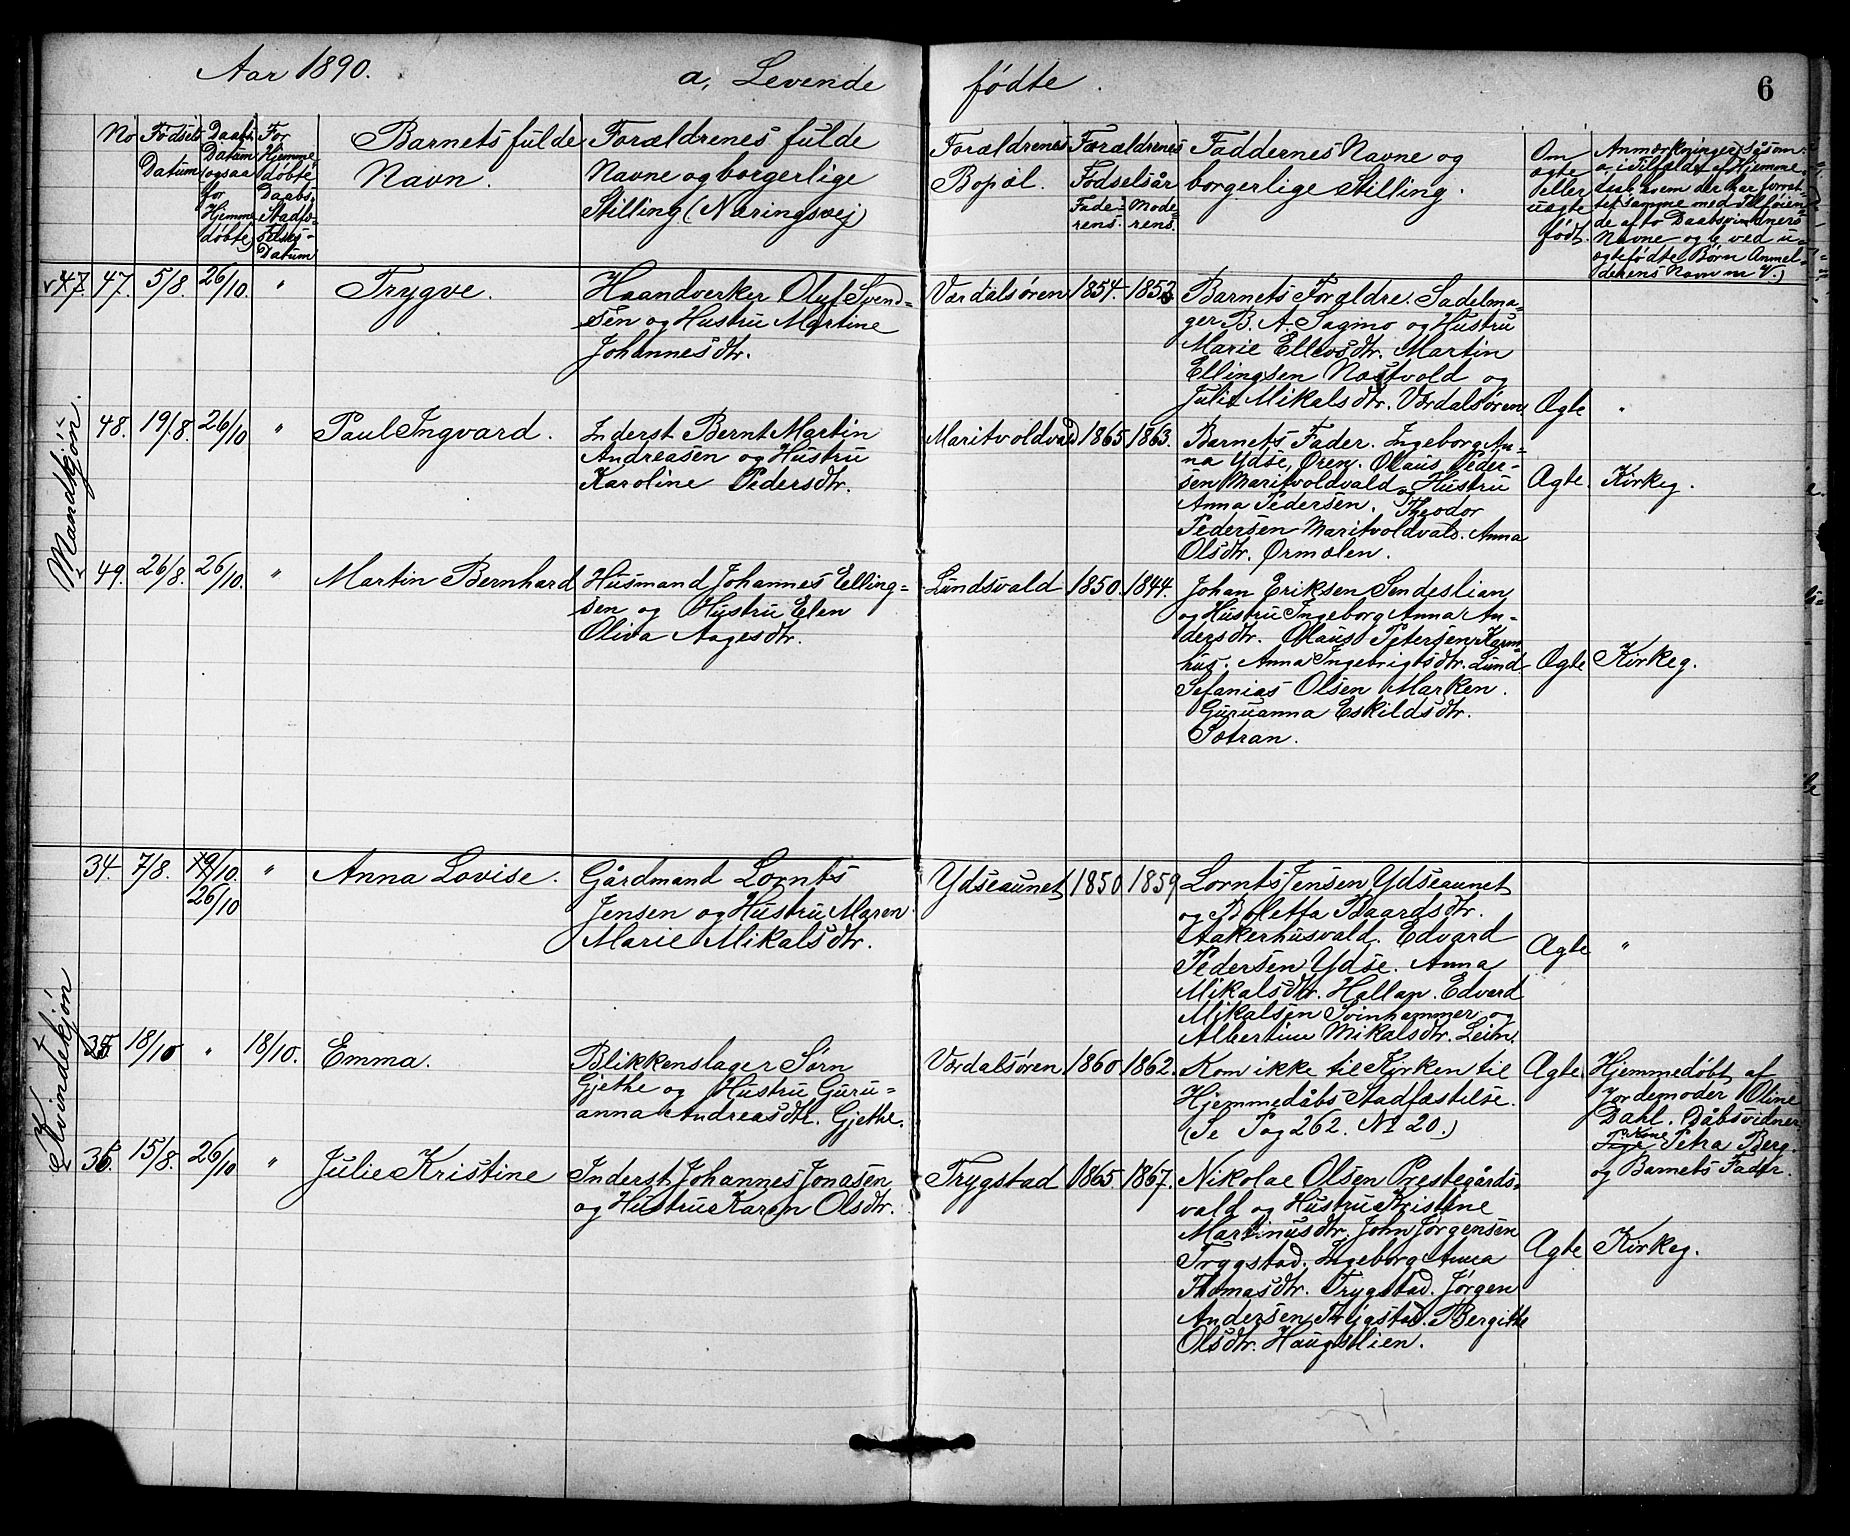 Aar 1890.
a, Levende fødte.
6
No
Fødsels Datum
Daabs Datum (ogsaa for Hjemme døbte)
For Hjemme døbte Daabs Stadfæstelses Datum
Barnets fulde
Navn.
Forældrenes fulde
Navne og borgerlige
Stilling (Næringsvej)
Forældrenes
Bopæl.
Forældrenes
Fødselsår
Fade=
rens.
Mode=
rens.
Faddernes Navne og
borgerlige Stilling.
Om
ægte
eller
uægte
født.
Anmærkninger, såsom:
a, i Tilfælde af Hjemme=
daab, hvem der har forret=
tet samme med Tilføien=
de af to Daabsvidners
Navne og b, ved u=
ægtefødte Børn Anmel=
derens Navn m. V.)
Mandkjøn.
47. 47. 5/8. 26/10. " Trygve.
Haandverker Oluf Svend=
sen og Hustru Martine
Johannesdtr.
Værdalsøren 1854. 1853
Barnets Forældre. Sadelma=
ger B. A. Sagmo og Hustru
Marie Ellevsdtr. Martin
Ellingsen Næstvold og
Julie Mikalsdtr. Værdalsøren
Ægte "
48. 19/8. 26/10 " Paul Ingvard.
Inderst Bernt Martin
Andreasen og Hustru
Karoline Pedersdtr.
Maritvoldvald 1865 1863.
Barnets Fader. Ingeborg An=
na Ydse, Øren. Olaus Peder=
sen Maritvoldvald og Hustru
Anna Pedersen. Theodor
Pedersen Maritvoldvald. Anna
Olsdtr. Ørmælen.
Ægte. Kirkeg.
49. 26/8. 26/10. " Martin Bernhard
Husmand Johannes Elling=
sen og Hustru Elen
Oliva Aagesdtr.
Lundsvald 1850. 1844.
Johan Eriksen Sendeslian
og Hustru Ingeborg Anna An=
dersdtr. Olaus Petersen Karm=
hus. Anna Ingebrigtsdtr. Lund.
Sefanias Olsen Marken.
Guruanna Eskildsdtr.
Sætran.
Ægte Kirkeg.
Kvindekjøn
34. 7/8. 19/10. " Anna Lovise.
26/10
Gårdmand Lornts
Jensen og Hustru Maren
Marie Mikalsdtr.
Ydseaunet 1850 1859
Lornts Jensen Ydseaunet
og Boletta Baardsdtr.
Aakerhusvald. Edvard
Pedersen Ydse. Anna
Mikalsdtr. Hallan. Edvard
Mikalsen Svinhammer og
Albertine Mikalsdtr. Leirn.
Ægte "
35. 18/10 " 18/10. Emma.
Blikkenslager Sørn
Gjethe og Hustru Guru=
anna Andreasdtr. Gjethe.
Værdalsøren 1860 1862.
Kom ikke til Kirken til
Hjemmedåbs Stadfæstelse.
(Se Pag 262. No 20.)
Ægte.
Hjemmedøbt af
Jordemoder Oline
Dahl. Dåbsvidner,
Kone Petra Berg.
og Barnets Fader.
36. 15/8. 26/10 " Julie Kristine
Inderst Johannes Jonasen
og Hustru Karen Olsdtr.
Trygstad 1865. 1867.
Nikolae Olsen Prestegårds=
vald og Hustru Kristine
Martinusdtr. John Jørgensen
Trygstad. Ingeborg Anna
Thomasdtr. Trygstad. Jørgen
Andersen Trygstad. Bergitte
Olsdtr. Haugslien.
Ægte Kirkeg.